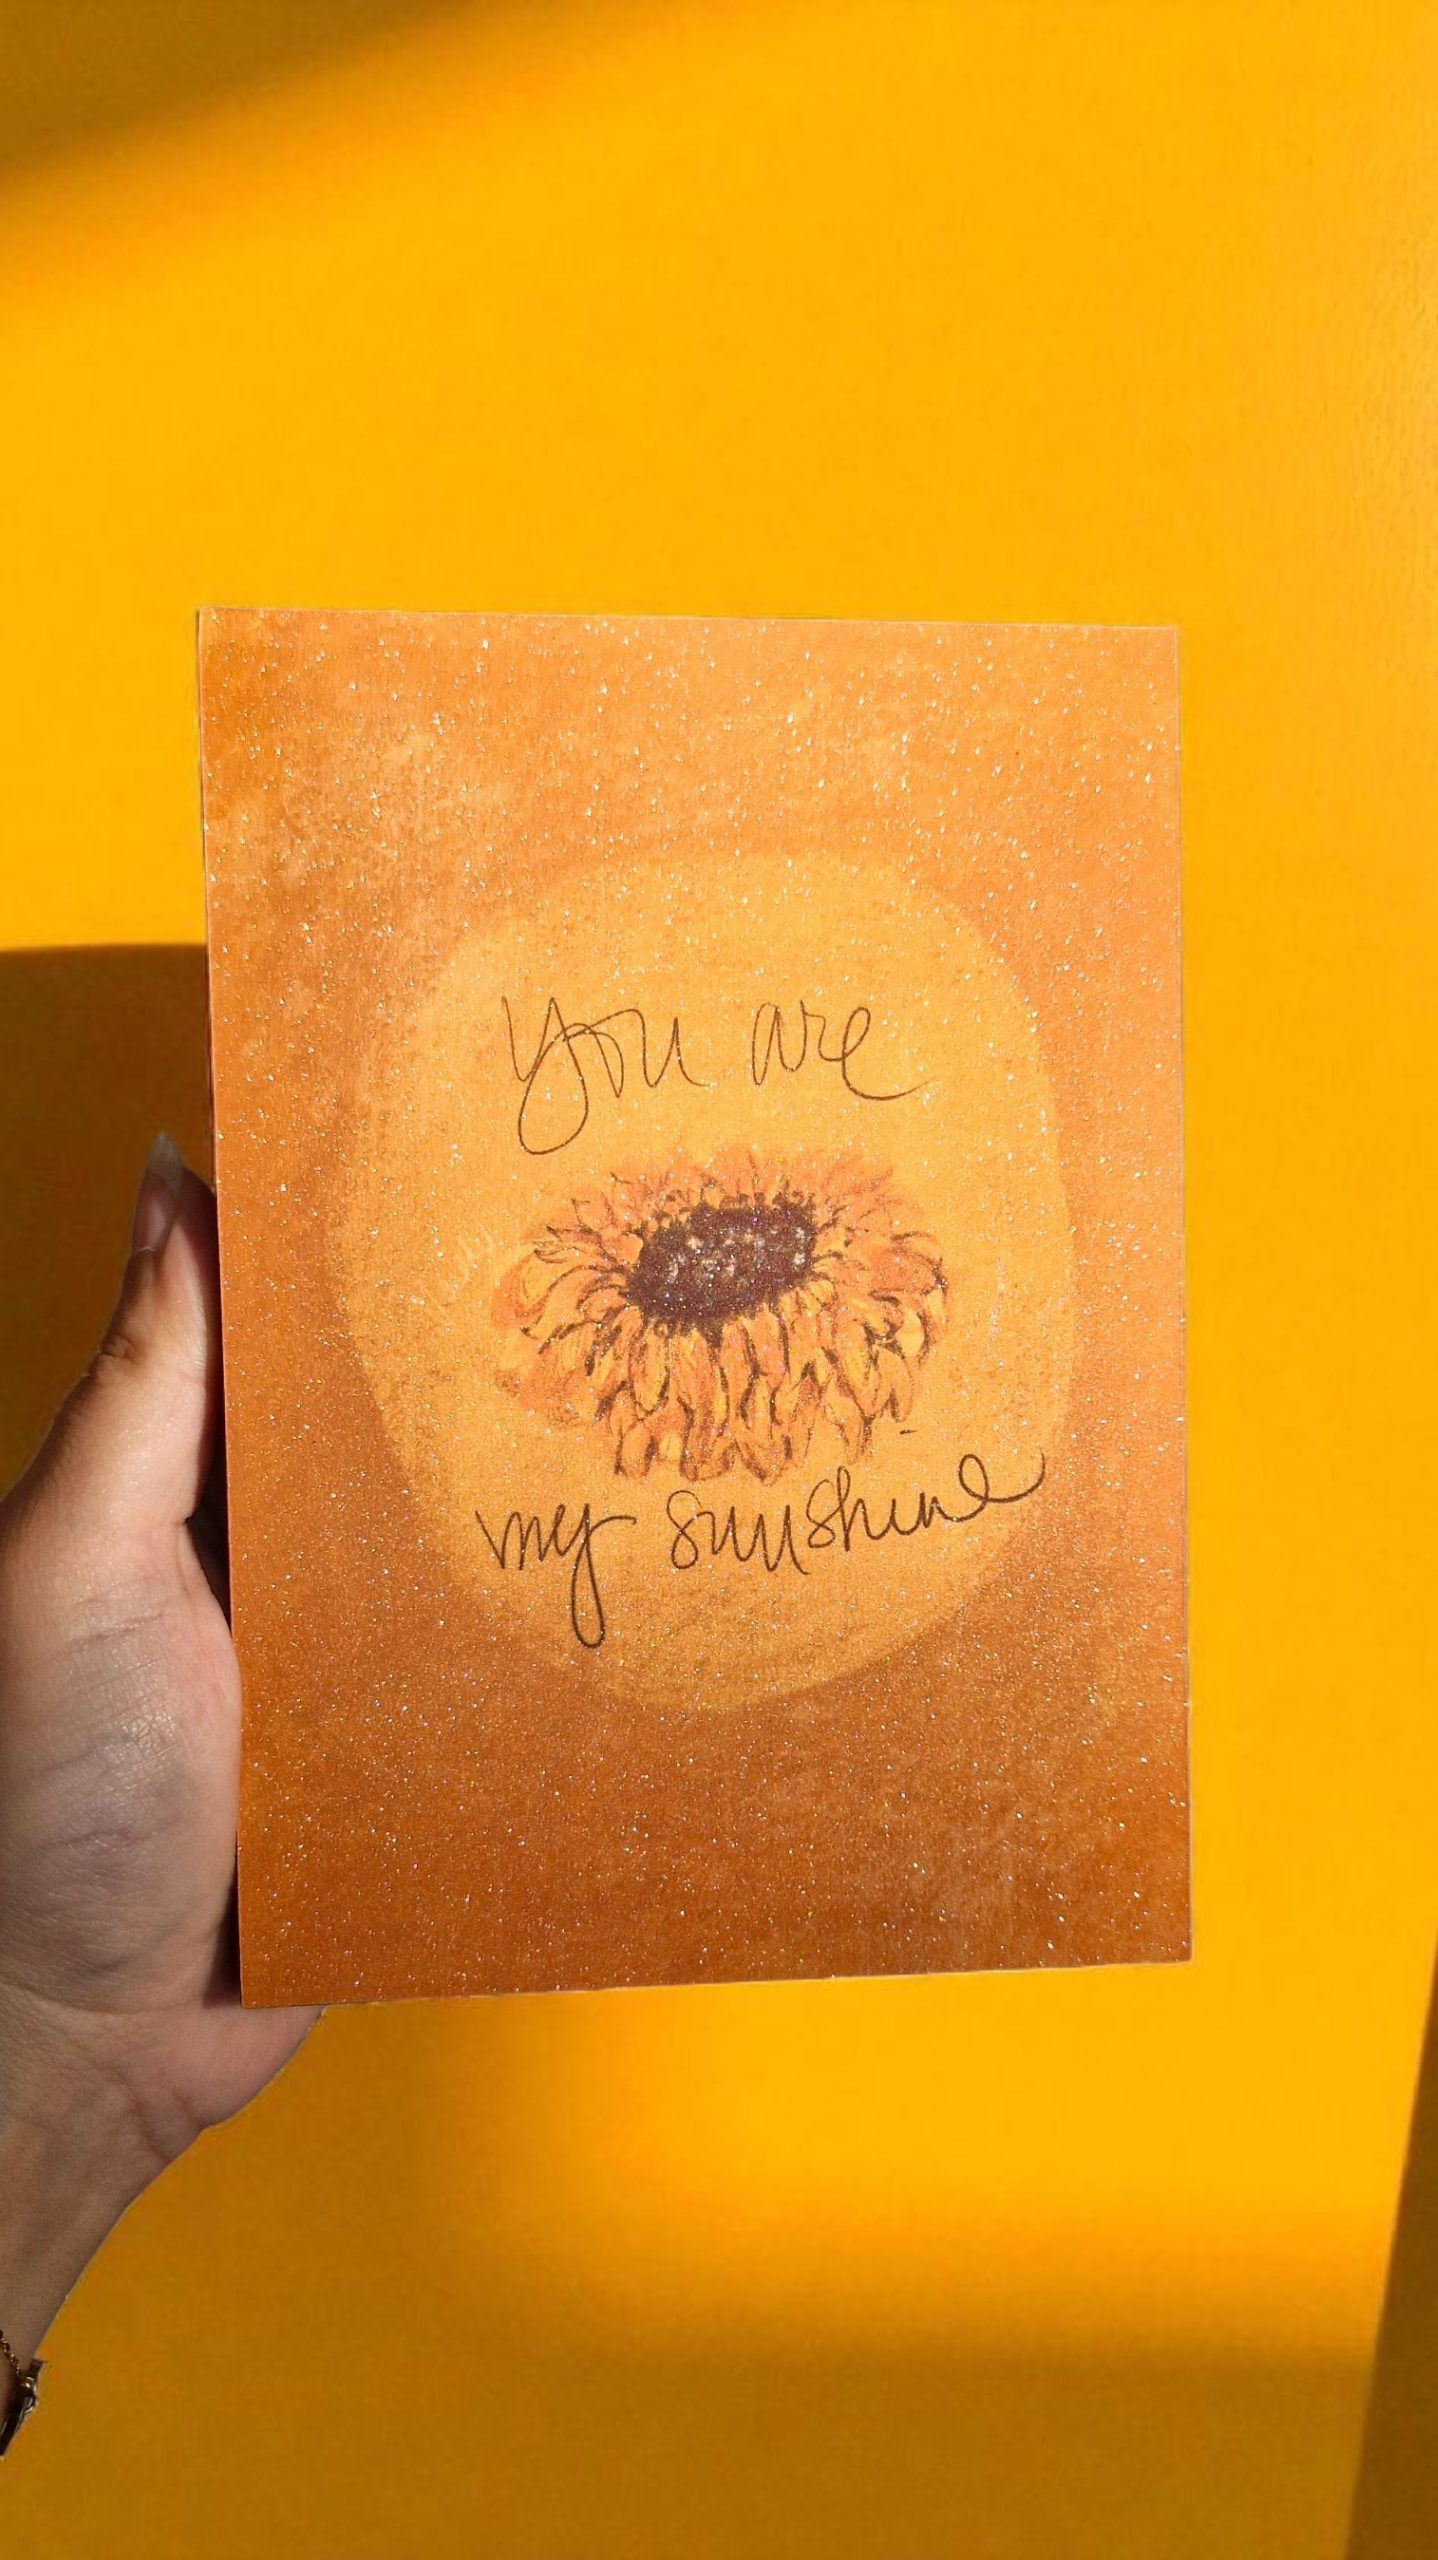 you are
my sunshine